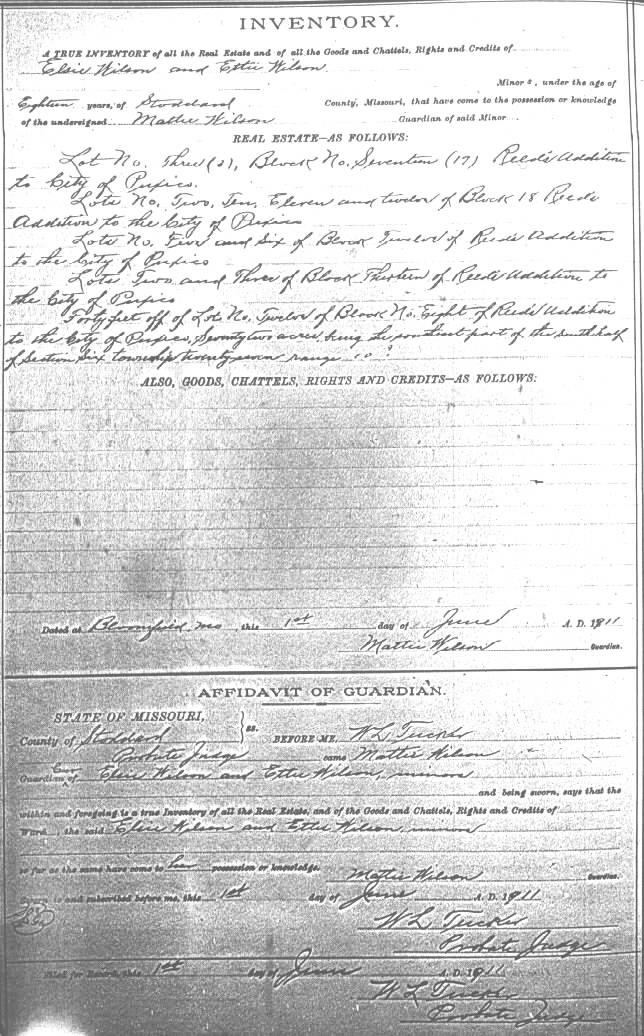 INVENTORY.
A TRUE INVENTORY of all the Real Estate and of all the Goods and Chattels, Rights and Credits of
Elsie Wilson and Ettie Wilson
Minor s, under the age of
Eighteen years, of Stoddard County, Missouri, that have come to the possession or knowledge
of the undersigned Mattie Wilson Guardian of said Minor
REAL ESTATE—AS FOLLOWS:
Lot No. Three (3), Block No. Seventeen (17) Reeds Addition
to City of Puxico.
Lots No. Two, Ten, Eleven and twelve of Block 18 Reeds
Addition to the City of Puxico
Lots No. Five and Six of Block Twelve of Reeds Addition
to the City of Puxico
Lots Two and Three of Block Thirteen of Reeds Addition to
the City of Puxico
Forty feet off of Lots No. Twelve of Block No. Eight of Reeds Addition
to the City of Puxico, Seventy two acres, being the part of the south half
of Section Six township twenty seven range
ALSO, GOODS, CHATTELS, RIGHTS AND CREDITS—AS FOLLOWS:
Dated at Bloomfield, Mo, this 1st day of June A. D. 1911
Mattie Wilson Guardian.
AFFIDAVIT OF GUARDIAN.
STATE OF MISSOURI,
County of Stoddard } ss. BEFORE ME, W L Tucker
Probate Judge came Mattie Wilson
Guardian of Elsie Wilson and Ettie Wilson, minors
and being sworn, says that the
within and foregoing is a true Inventory of all the Real Estate, and of the Goods and Chattels, Rights and Credits of
Ward , the said Elsie Wilson and Ettie Wilson, minors
so far as the same have come to her possession or knowledge.
Mattie Wilson Guardian.
and subscribed before me, this 1st day of June A. D. 1911
W L Tucker
Probate Judge
Filed for Record, this 1st day of June A. D. 1911
W L Tucker
Probate Judge